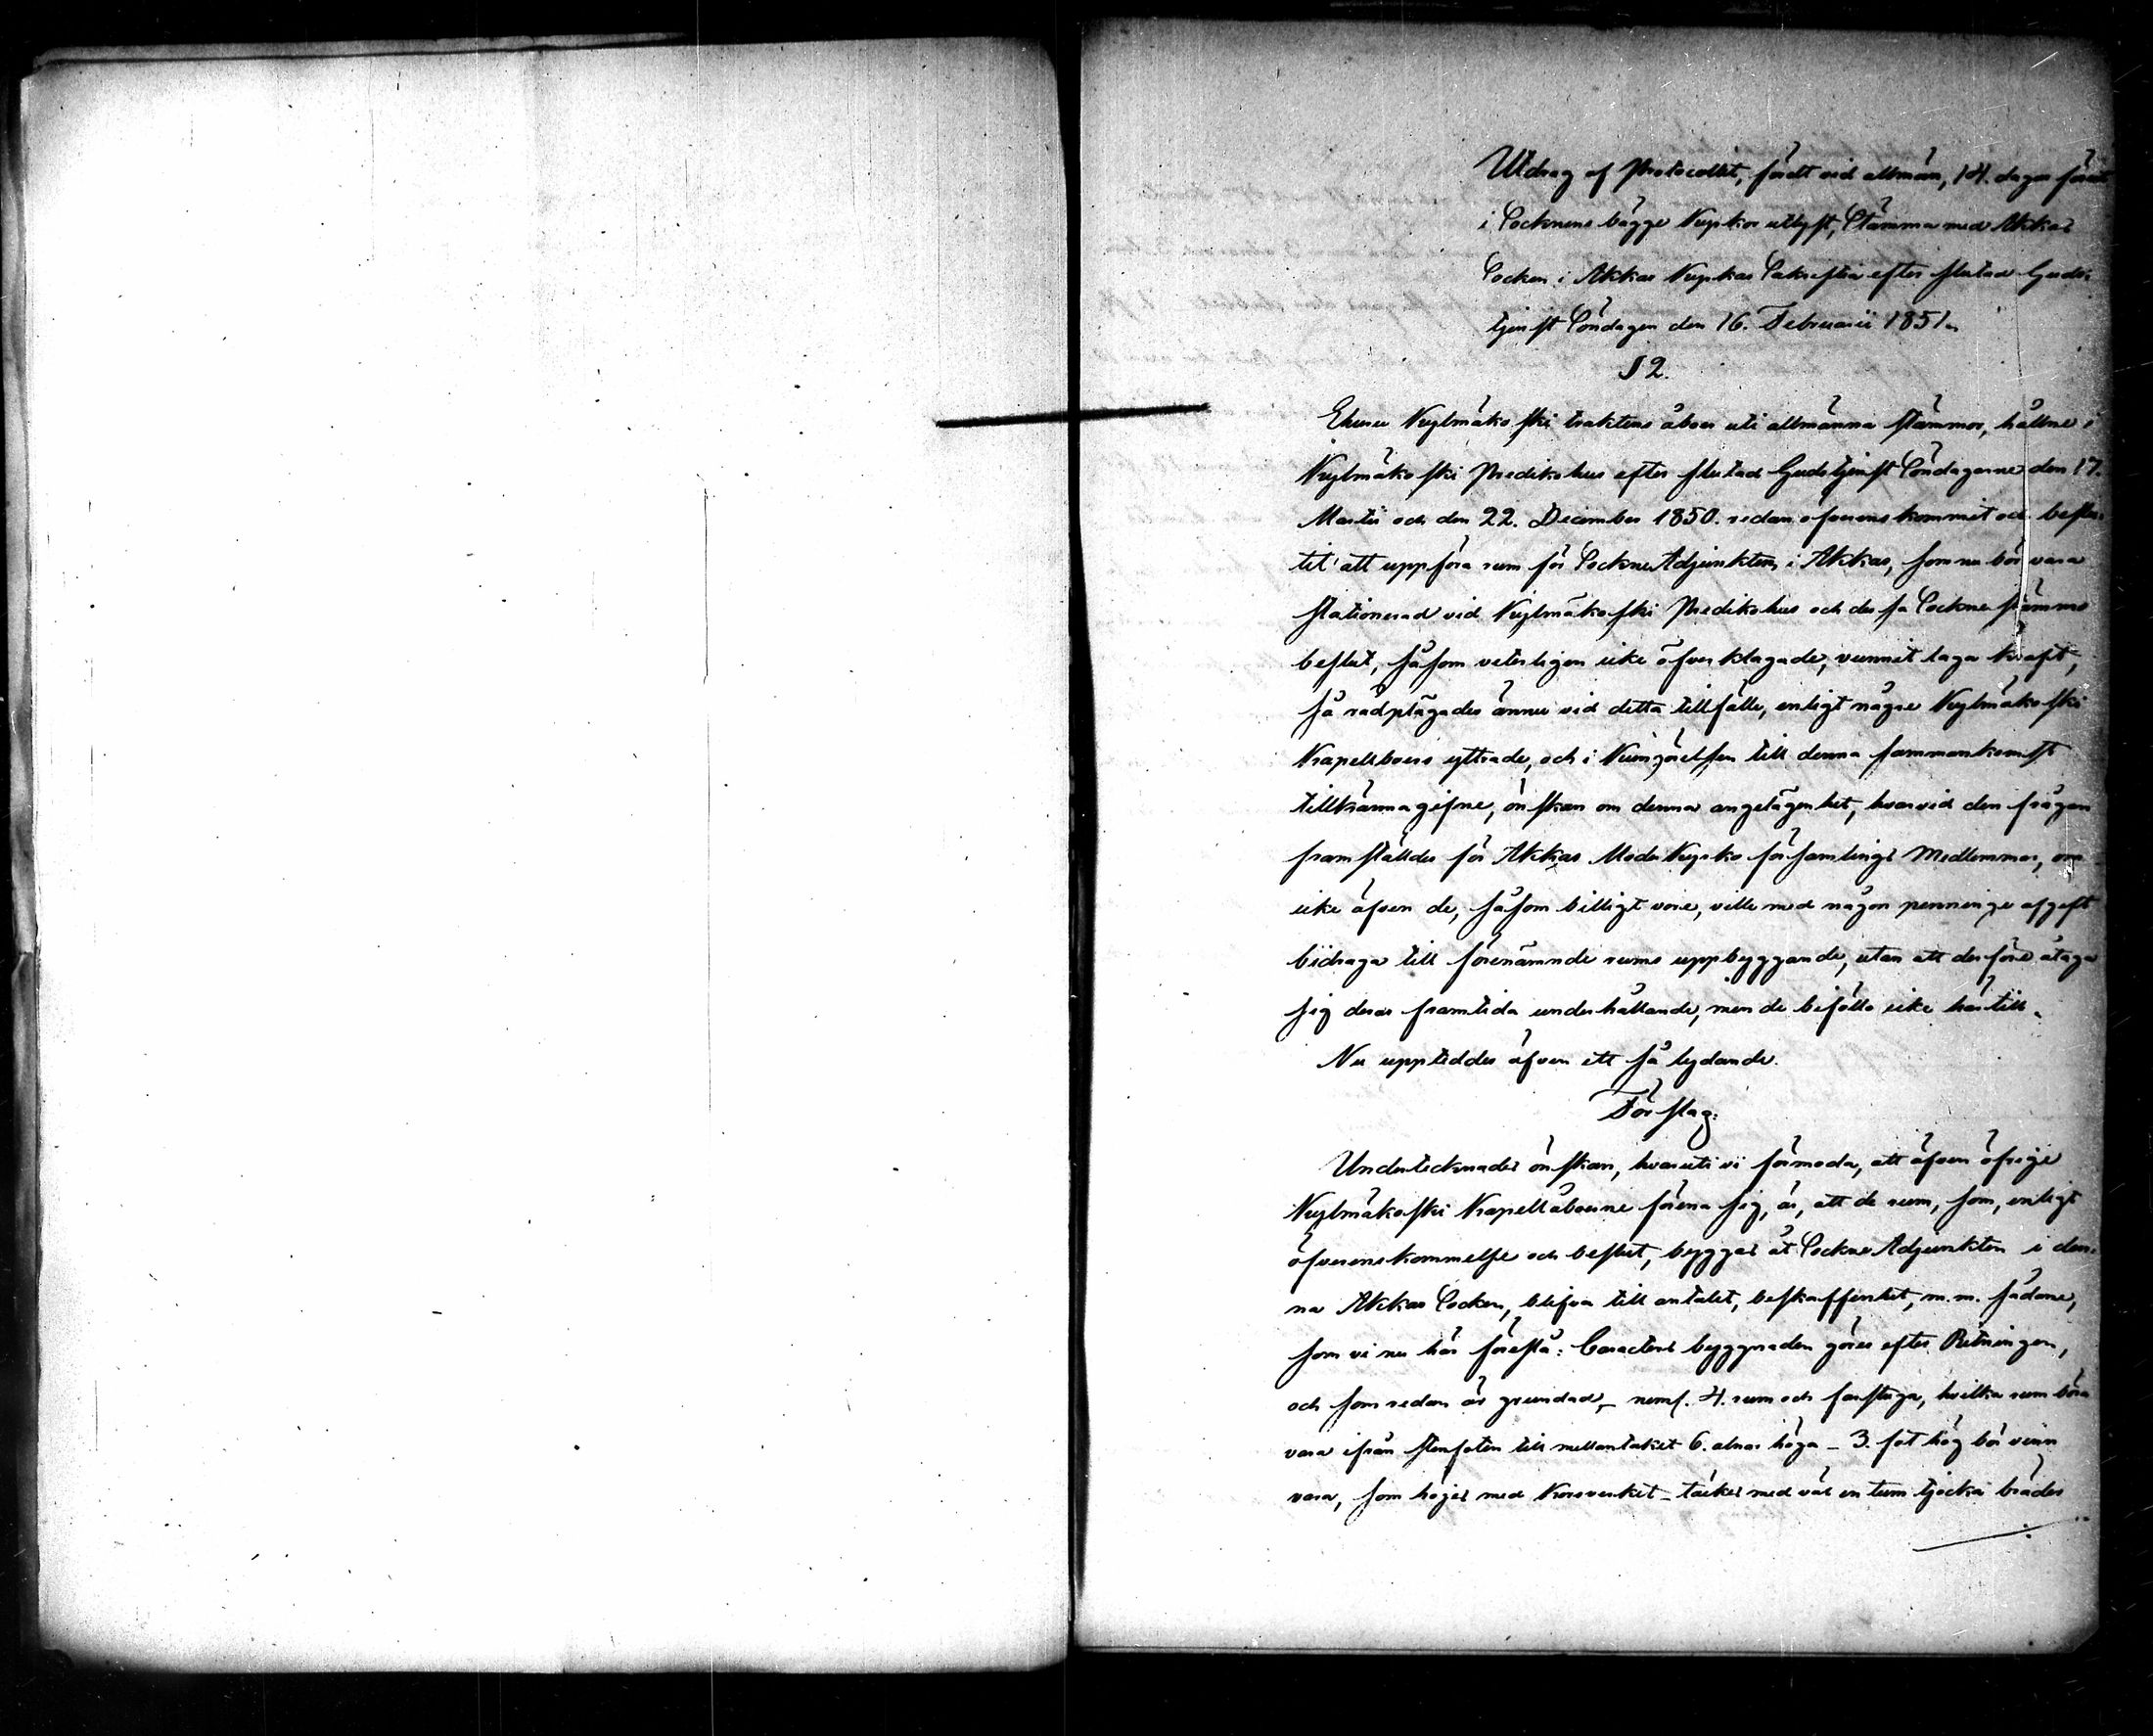 Utdrag af Protocollet, fördt vid allmän, 14. dagar förut
i Socknens bägge Kyrkor utlyst, Stämma med Akkas
Socken i Akkas Kyrkas Sakristia efter slutad Guds-
tjenst Söndagen den 16. Februarii 1851.
§ 2.
Ehuru Kylmäkoski traktens åboer uti allmänna stämmor, hållne i
Kylmäkoski Predikohus efter slutad Gudstjenst Söndagarne den 17.
Martii och den 22. December 1850. redan öfverenskommit och beslu-
tit att uppföra rum för SockneAdjunkten i Akkas, som nu bör vara
stationerad vid Kylmäkoski Predikohus och dessa Sockne stämmo
beslut, såsom veterligen icke öfverklagade, vunnit laga kraft,
så rådplägades ännu vid detta tillfälle, enligt någre Kylmäkoski
Kapellboers yttrade, och i Kungörelsen till denna sammankomst
tillkännagifne, önskan om denna angelägenhet, hvarvid den frågan
framställdes för Akkas ModerKyrko församlings Medlemmar, om
icke äfven de, såsom billigt vore, ville med någon penninge afgift
bidraga till förenämnde rums uppbyggande, utan att derföre åtaga
sig deras framtida underhållande, men de biföllo icke härtill.
Nu uppteddes äfven ett så lydande.
Förslag:
Undertecknades önskan, hvaruti vi förmoda, att äfven öfrige
Kylmäkoski Kapellåboerne förena sig, är, att de rum, som, enligt
öfverenskommelse och beslut, byggas åt SockneAdjunkten i den-
na Akkas Socken, blifva till antalet, beskaffenhet, m.m. sådane,
som vi nu här föreslå: Caracters byggnaden göres efter Ritningen,
och som redan är grundad, neml. 4. rum och farstuga, hvilka rum böra
vara ifrån stenfoten till mellantaket 6. alnar höga – 3. fot hög bör
vara, som höjes med Korsverket – täckes med en tum tjocka bräder